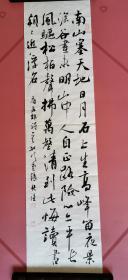 南山塞天地日月石上生高峰留夜景
深谷昼未明山中人自正路险心亦平長
風驅松柏聲拂萬壑清到此悔讀書
朝朝近浮名